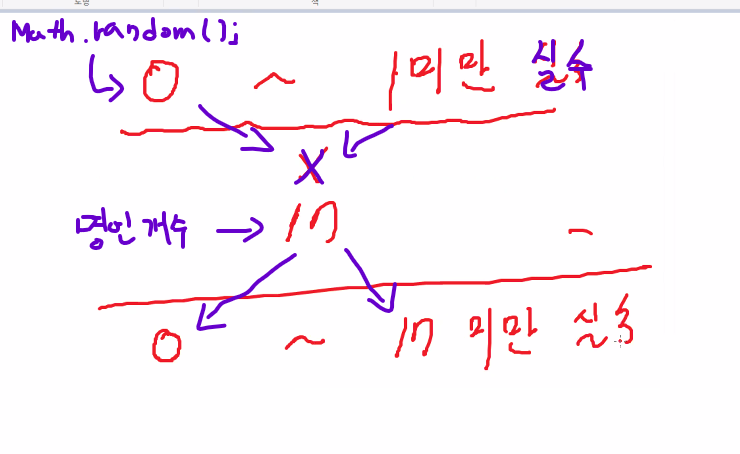 Math.random();
0 ~ 1미만 실수
X
명언개수 → 17
0 ~ 17 미만 실수